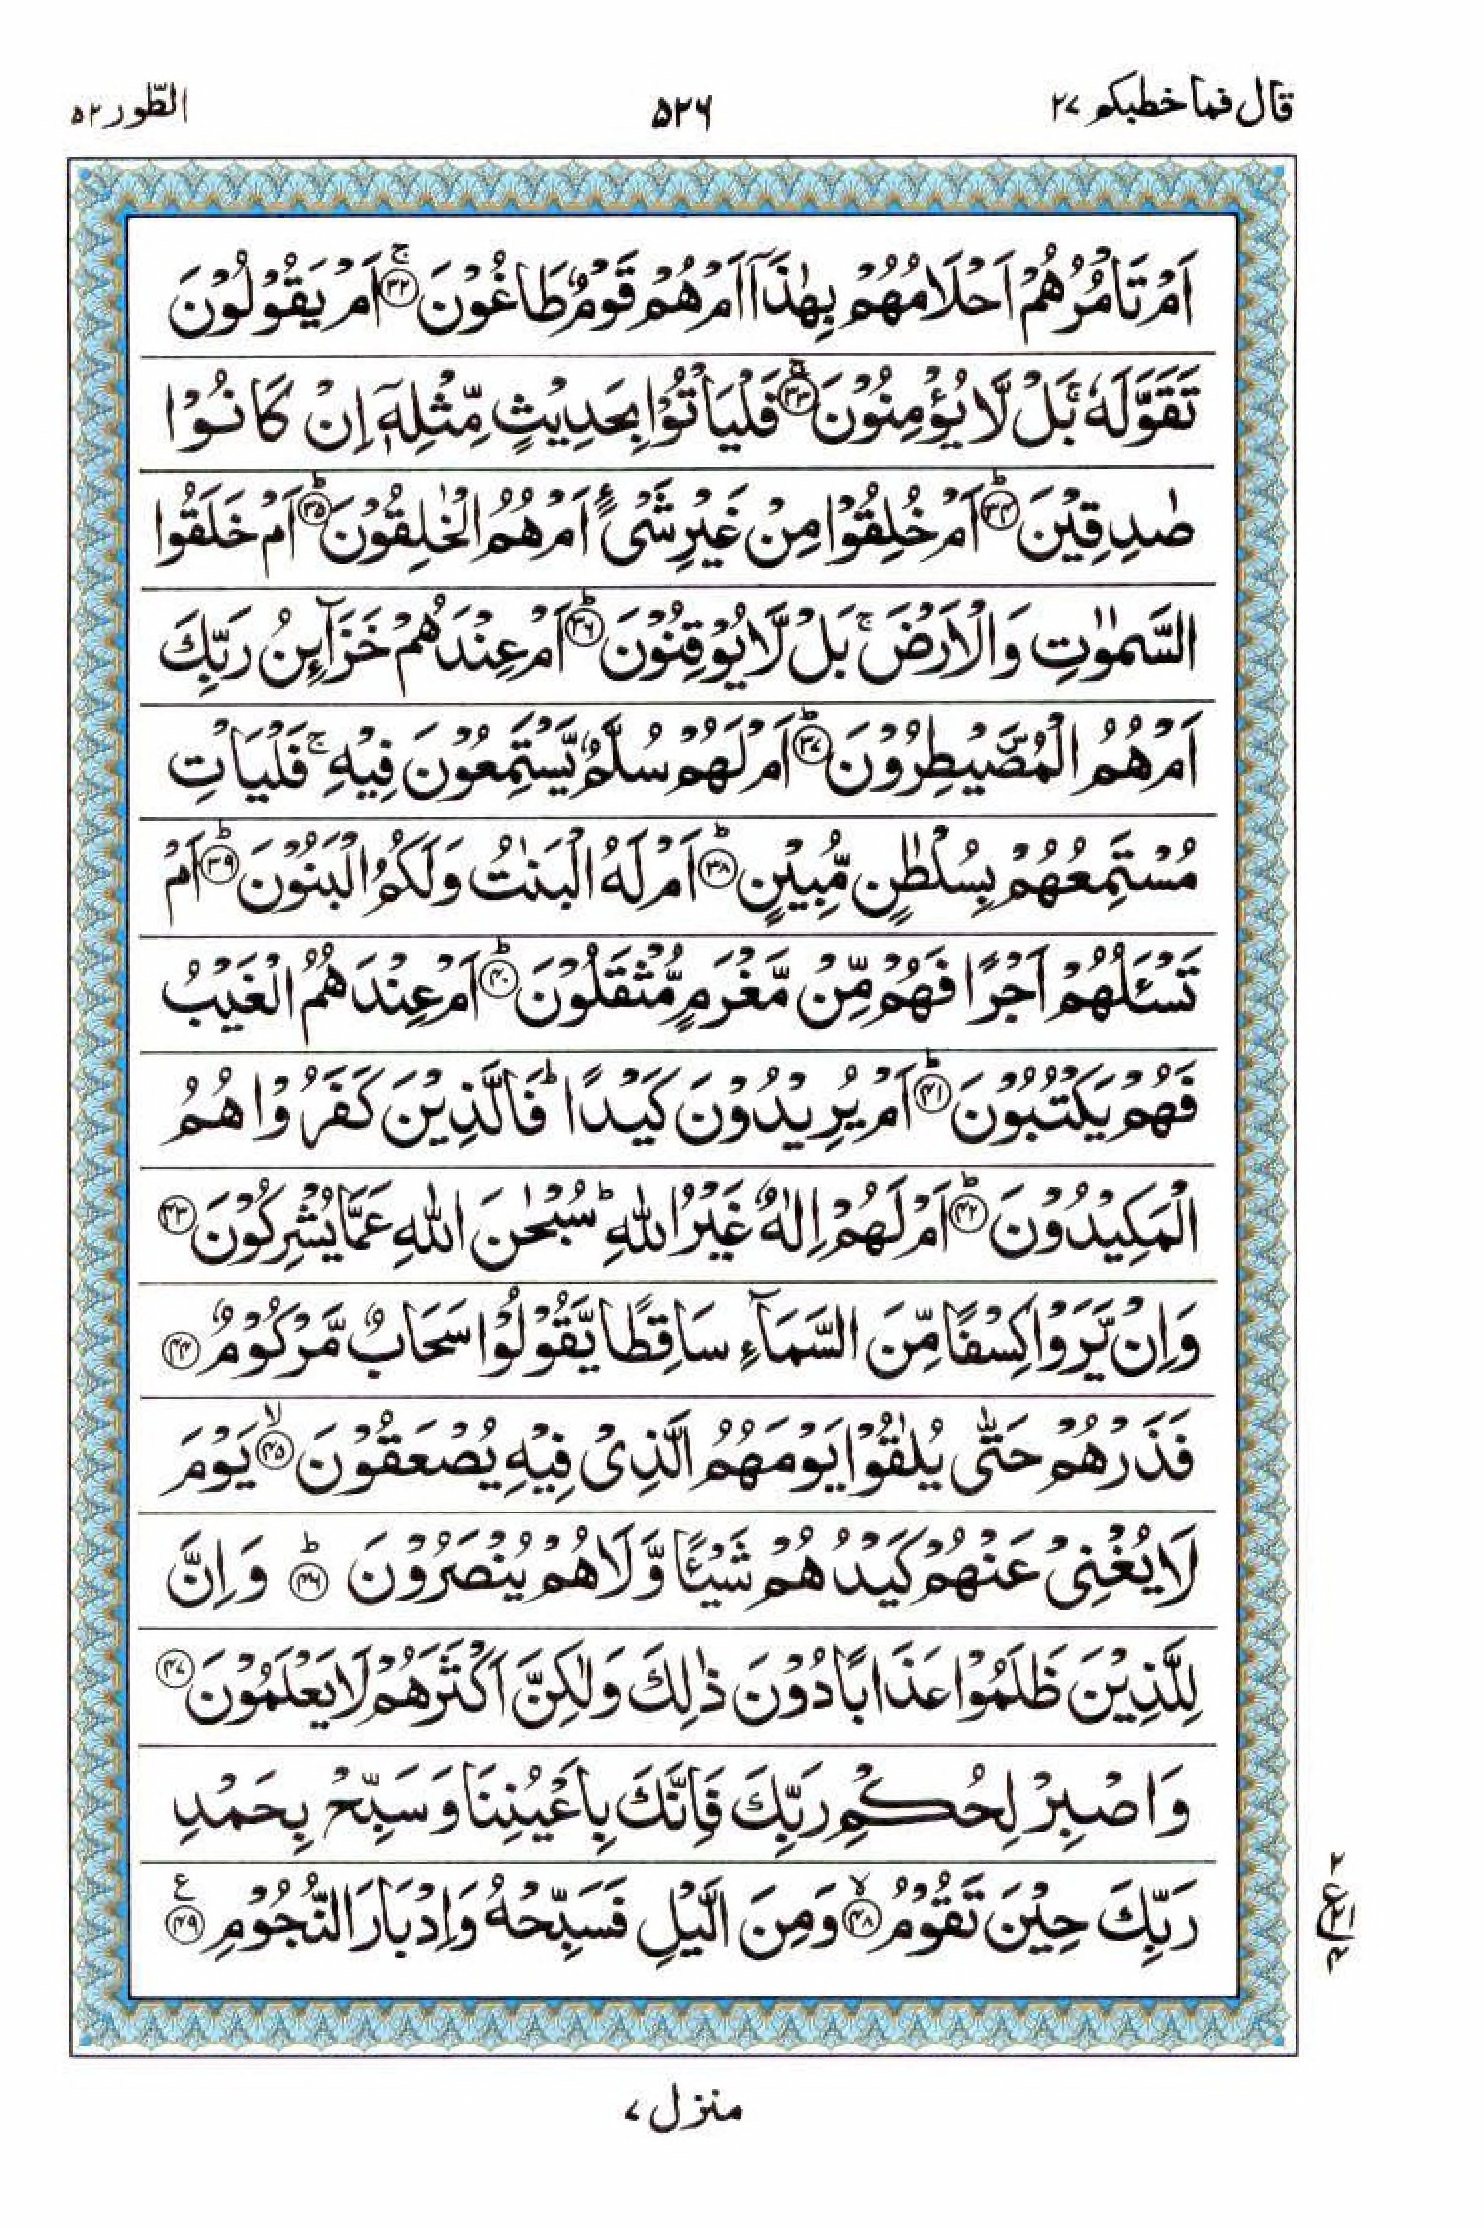 قال فما خطبکم ۲۷
۵۲۶
الطّور ۵۲
اَمۡ تَاۡمُرُهُمۡ اَحۡلَامُهُمۡ بِهٰذَآ اَمۡ هُمۡ قَوۡمٌ طَاغُوۡنَ ۚ‏﴿۳۲﴾ اَمۡ يَقُوۡلُوۡنَ
تَقَوَّلَهٗ ۚ بَلۡ لَّا يُؤۡمِنُوۡنَ ۚ‏﴿۳۳﴾ فَلۡيَاۡتُوۡا بِحَدِيۡثٍ مِّثۡلِهٖۤ اِنۡ كَانُوۡا
صٰدِقِيۡنَ ؕ‏﴿۳۴﴾ اَمۡ خُلِقُوۡا مِنۡ غَيۡرِ شَىۡءٍ اَمۡ هُمُ الۡخٰلِقُوۡنَ ؕ‏﴿۳۵﴾ اَمۡ خَلَقُوا
السَّمٰوٰتِ وَالۡاَرۡضَ ۚ بَلۡ لَّا يُوۡقِنُوۡنَ ؕ‏﴿۳۶﴾ اَمۡ عِنۡدَهُمۡ خَزَآئِنُ رَبِّكَ
اَمۡ هُمُ الۡمُصَۜيۡطِرُوۡنَ ؕ‏﴿۳۷﴾ اَمۡ لَهُمۡ سُلَّمٌ يَّسۡتَمِعُوۡنَ فِيۡهِ ۚ فَلۡيَاۡتِ
مُسۡتَمِعُهُمۡ بِسُلۡطٰنٍ مُّبِيۡنٍ ؕ‏﴿۳۸﴾ اَمۡ لَهُ الۡبَنٰتُ وَلَكُمُ الۡبَنُوۡنَ ؕ‏﴿۳۹﴾ اَمۡ
تَسۡـَٔلُهُمۡ اَجۡرًا فَهُمۡ مِّنۡ مَّغۡرَمٍ مُّثۡقَلُوۡنَ ؕ‏﴿۴۰﴾ اَمۡ عِنۡدَهُمُ الۡغَيۡبُ
فَهُمۡ يَكۡتُبُوۡنَ ؕ‏﴿۴۱﴾ اَمۡ يُرِيۡدُوۡنَ كَيۡدًا ؕ فَالَّذِيۡنَ كَفَرُوۡا هُمُ
الۡمَكِيۡدُوۡنَ ؕ‏﴿۴۲﴾ اَمۡ لَهُمۡ اِلٰهٌ غَيۡرُ اللّٰهِ ؕ سُبۡحٰنَ اللّٰهِ عَمَّا يُشۡرِكُوۡنَ ‏﴿۴۳﴾
وَاِنۡ يَّرَوۡا كِسۡفًا مِّنَ السَّمَآءِ سَاقِطًا يَّقُوۡلُوۡا سَحَابٌ مَّرۡكُوۡمٌ ‏﴿۴۴﴾
فَذَرۡهُمۡ حَتّٰى يُلٰقُوۡا يَوۡمَهُمُ الَّذِىۡ فِيۡهِ يُصۡعَقُوۡنَ ۙ‏﴿۴۵﴾ يَوۡمَ
لَا يُغۡنِىۡ عَنۡهُمۡ كَيۡدُهُمۡ شَيۡـًٔا وَّلَا هُمۡ يُنۡصَرُوۡنَ ؕ‏﴿۴۶﴾ وَاِنَّ
لِلَّذِيۡنَ ظَلَمُوۡا عَذَابًا دُوۡنَ ذٰلِكَ وَلٰـكِنَّ اَكۡثَرَهُمۡ لَا يَعۡلَمُوۡنَ ‏﴿۴۷﴾
وَاصۡبِرۡ لِحُكۡمِ رَبِّكَ فَاِنَّكَ بِاَعۡيُنِنَا وَسَبِّحۡ بِحَمۡدِ
رَبِّكَ حِيۡنَ تَقُوۡمُ ۙ‏﴿۴۸﴾ وَمِنَ الَّيۡلِ فَسَبِّحۡهُ وَاِدۡبَارَ النُّجُوۡمِ ‏﴿۴۹﴾ ع
۲
ع
۲۱
۴
منزل ۷